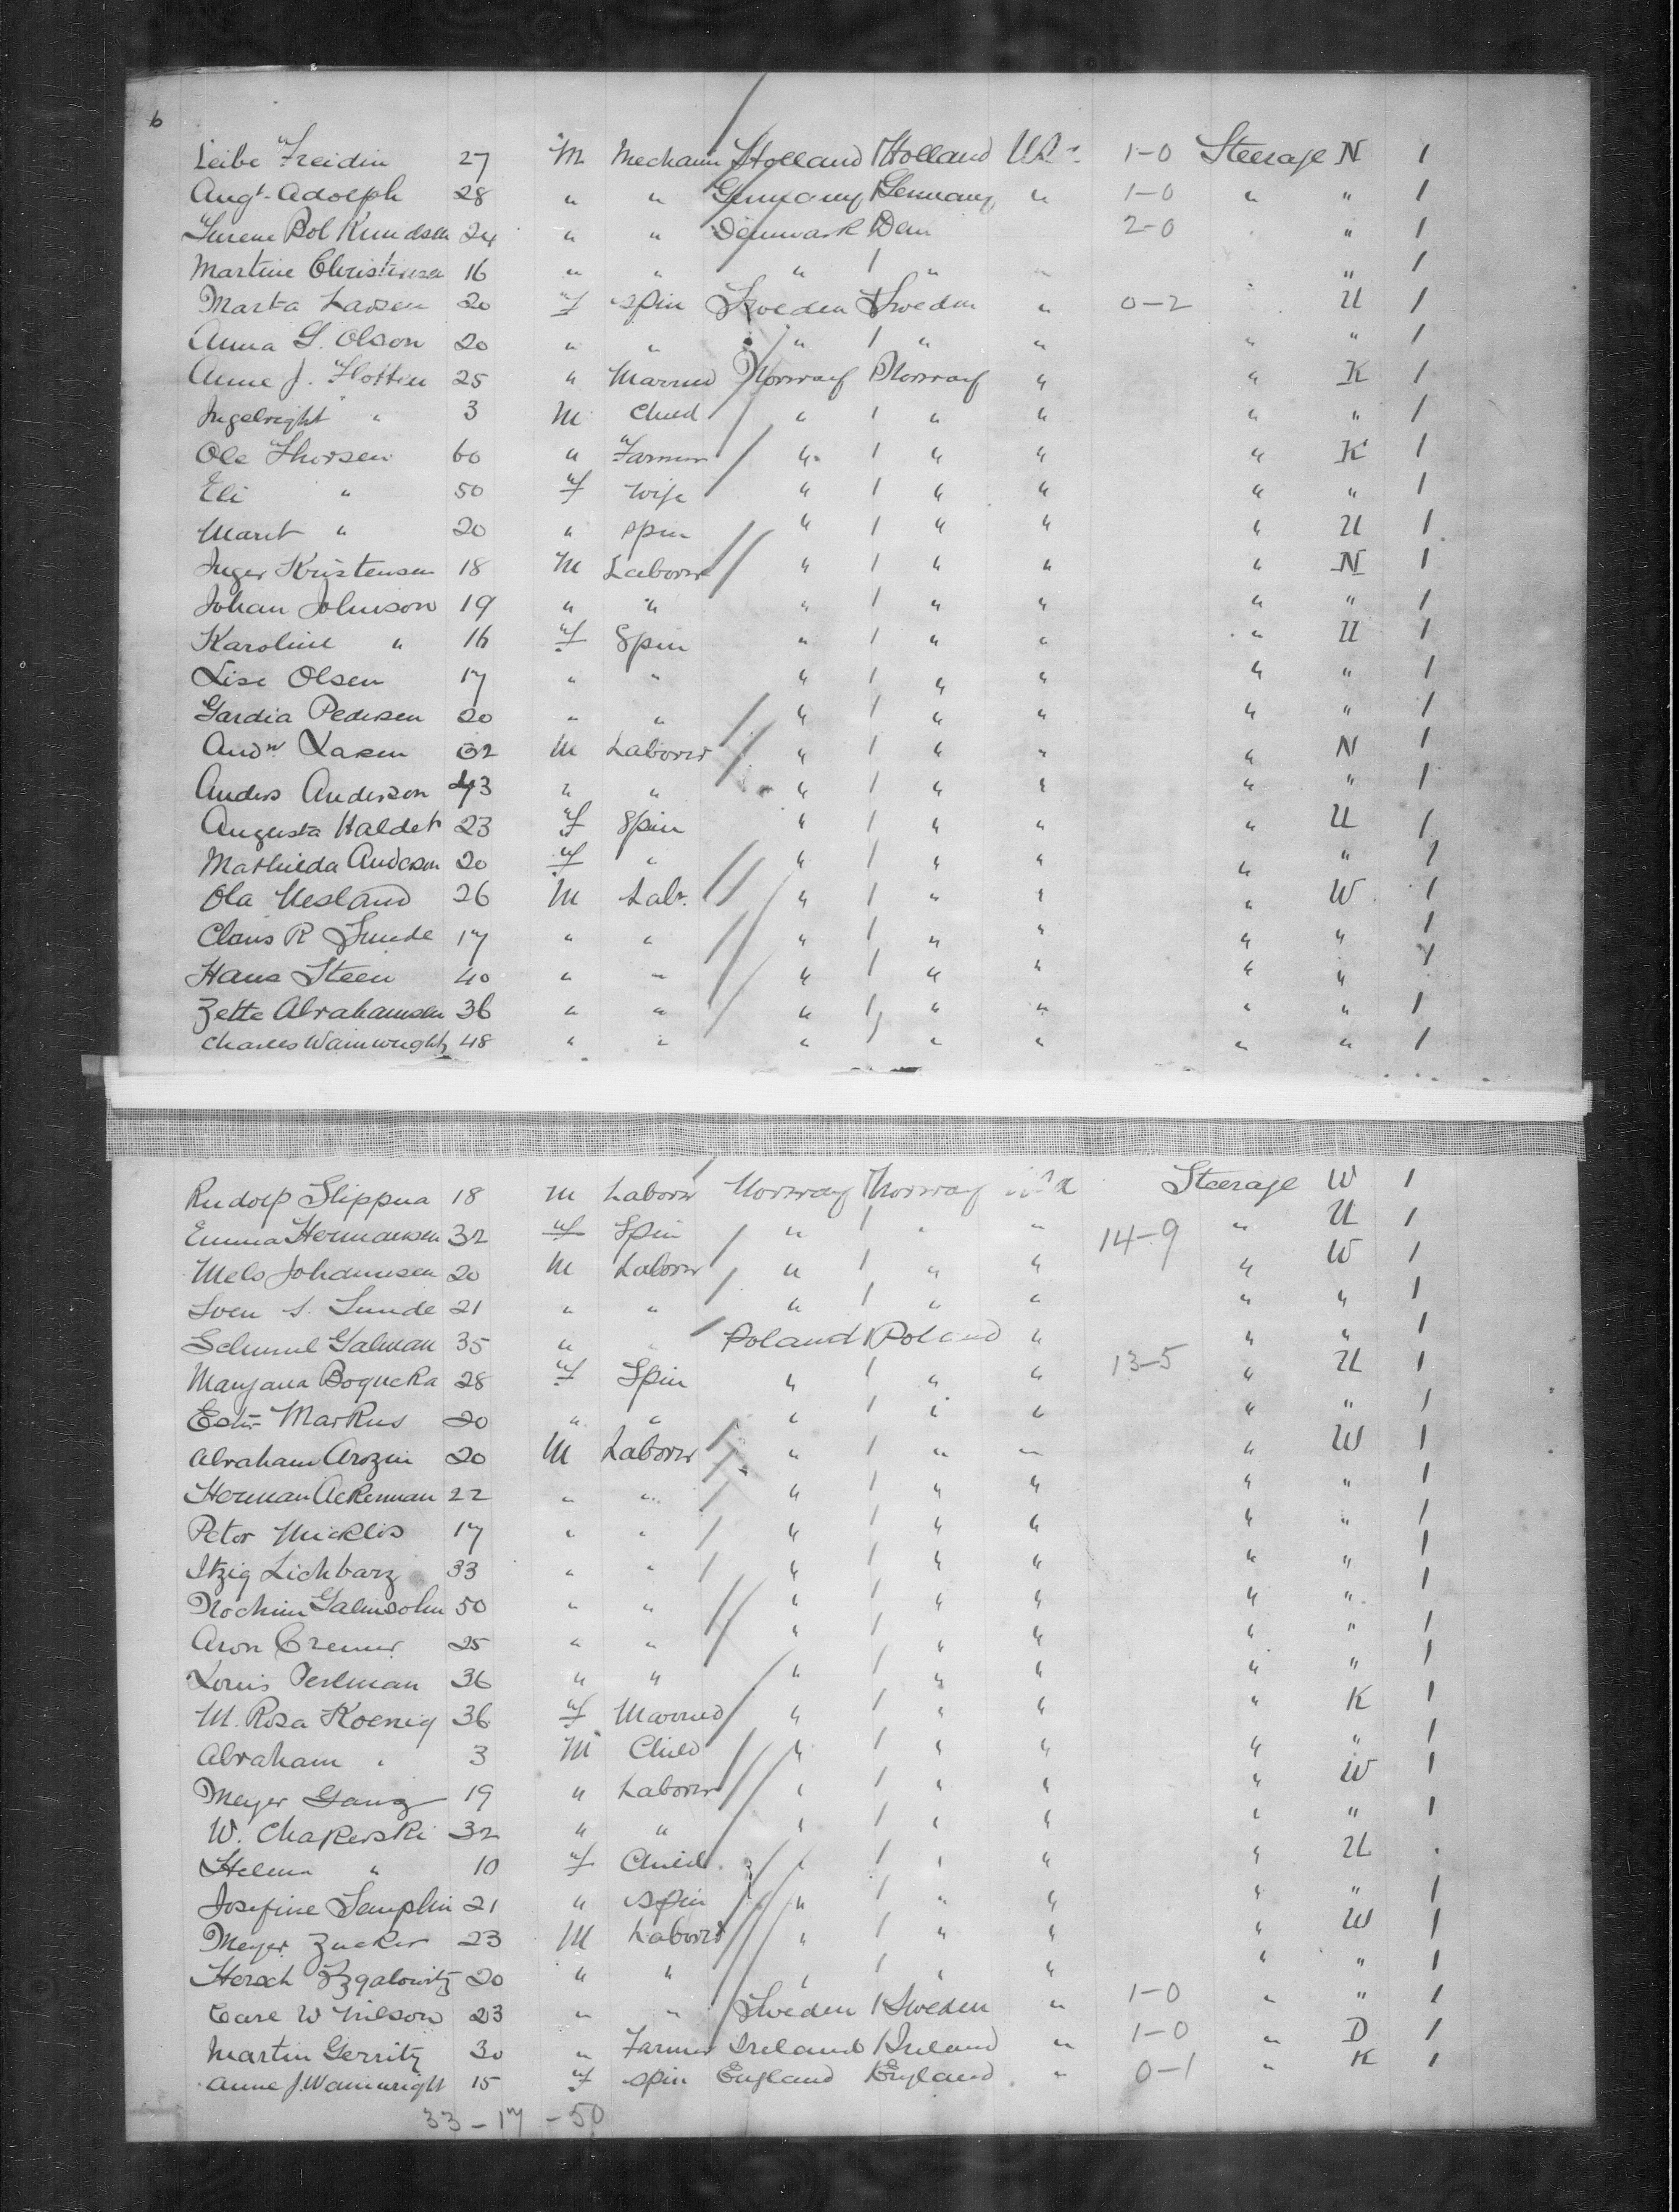 6
Leibe Freidin 27 M Mechanic Holland Holland USA 1-0 Steerage N 1
Augt. Adolph 28 " " Germany Germany " 1-0 " " 1
Bol Knudsen 24 " " Denmark Den 2-0 " 1
Martine Christensen 16 " " " " " " 1
Marta Larsen 20 f Spin Sweden Sweden " 0-2 U 1
Anna G. Olson 20 " " " " " " " 1
Anne J. Flotten 25 " Married Norway Norway " " K 1
Ingelright " 3 M Child " " " " " 1
Ole Thorsen 60 " Farmer " " " " K 1
Eli " 50 f Wife " " " " " 1
Marit " 20 " Spin " " " " U 1
Inger Kristensen 18 M Laborer " " " " N 1
Johan Johnson 19 " " " " " " " 1
Karoline " 16 f Spin " " " " U 1
Lise Olsen 17 " " " " " " " 1
Gardia Pedersen 20 " " " " " " " 1
Andw. Larsen 32 M Laborer " " " " N 1
Anders Anderson 43 " " " " " " " 1
Augusta Haldet 23 f Spin " " " " U 1
Mathilda Anderson 20 f " " " " " " 1
Ola Nesland 26 M Labr. " " " " W 1
Claus R Sunde 17 " " " " " " " 1
Hans Steen 40 " " " " " " " 1
Zette Abrahamsen 36 " " " " " " " 1
Charles Wainwright 48 " " " " " " " 1
Rudolf Slippua 18 M Laborer Norway Norway USA Steerage W 1
Emma Hermansen 32 f Spin " " " 14-9 " U 1
Nels Johannesen 20 M Laborer " " " " W 1
Sven S. Sunde 21 " " " " " " " 1
Schmul Galman 35 " " Poland Poland " " " 1
Maryana Bogucka 28 f Spin " " " 13-5 " U 1
Markus 20 " " " " " " " 1
Abraham Arozin 20 M Laborer " " " " W 1
Herman Ackerman 22 " " " " " " " 1
Peter Micklis 17 " " " " " " " 1
Itzig Lichbarz 33 " " " " " " " 1
Nochim Galmsohn 50 " " " " " " " 1
Aron Cremer 25 " " " " " " " 1
Louis Perlman 36 " " " " " " " 1
M. Rosa Koenig 36 f Married " " " " K 1
Abraham " 3 M Child " " " " " 1
Meyer Ganz 19 " Laborer " " " " W 1
W. Chakerski 32 " " " " " " " 1
Helena " 10 f Child " " " " U
Josefine Samplin 21 " Spin " " " " " 1
Meyer Zucker 23 M Laborer " " " " W 1
Hersch Zygalowitz 20 " " " " " " " 1
Carl W Nilson 23 " " Sweden Sweden " 1-0 " " 1
Martin Gerrity 30 " Farmer Ireland Ireland " 1-0 " D 1
Anne J. Wainwright 15 f Spin England England " 0-1 " K 1
33-17-50